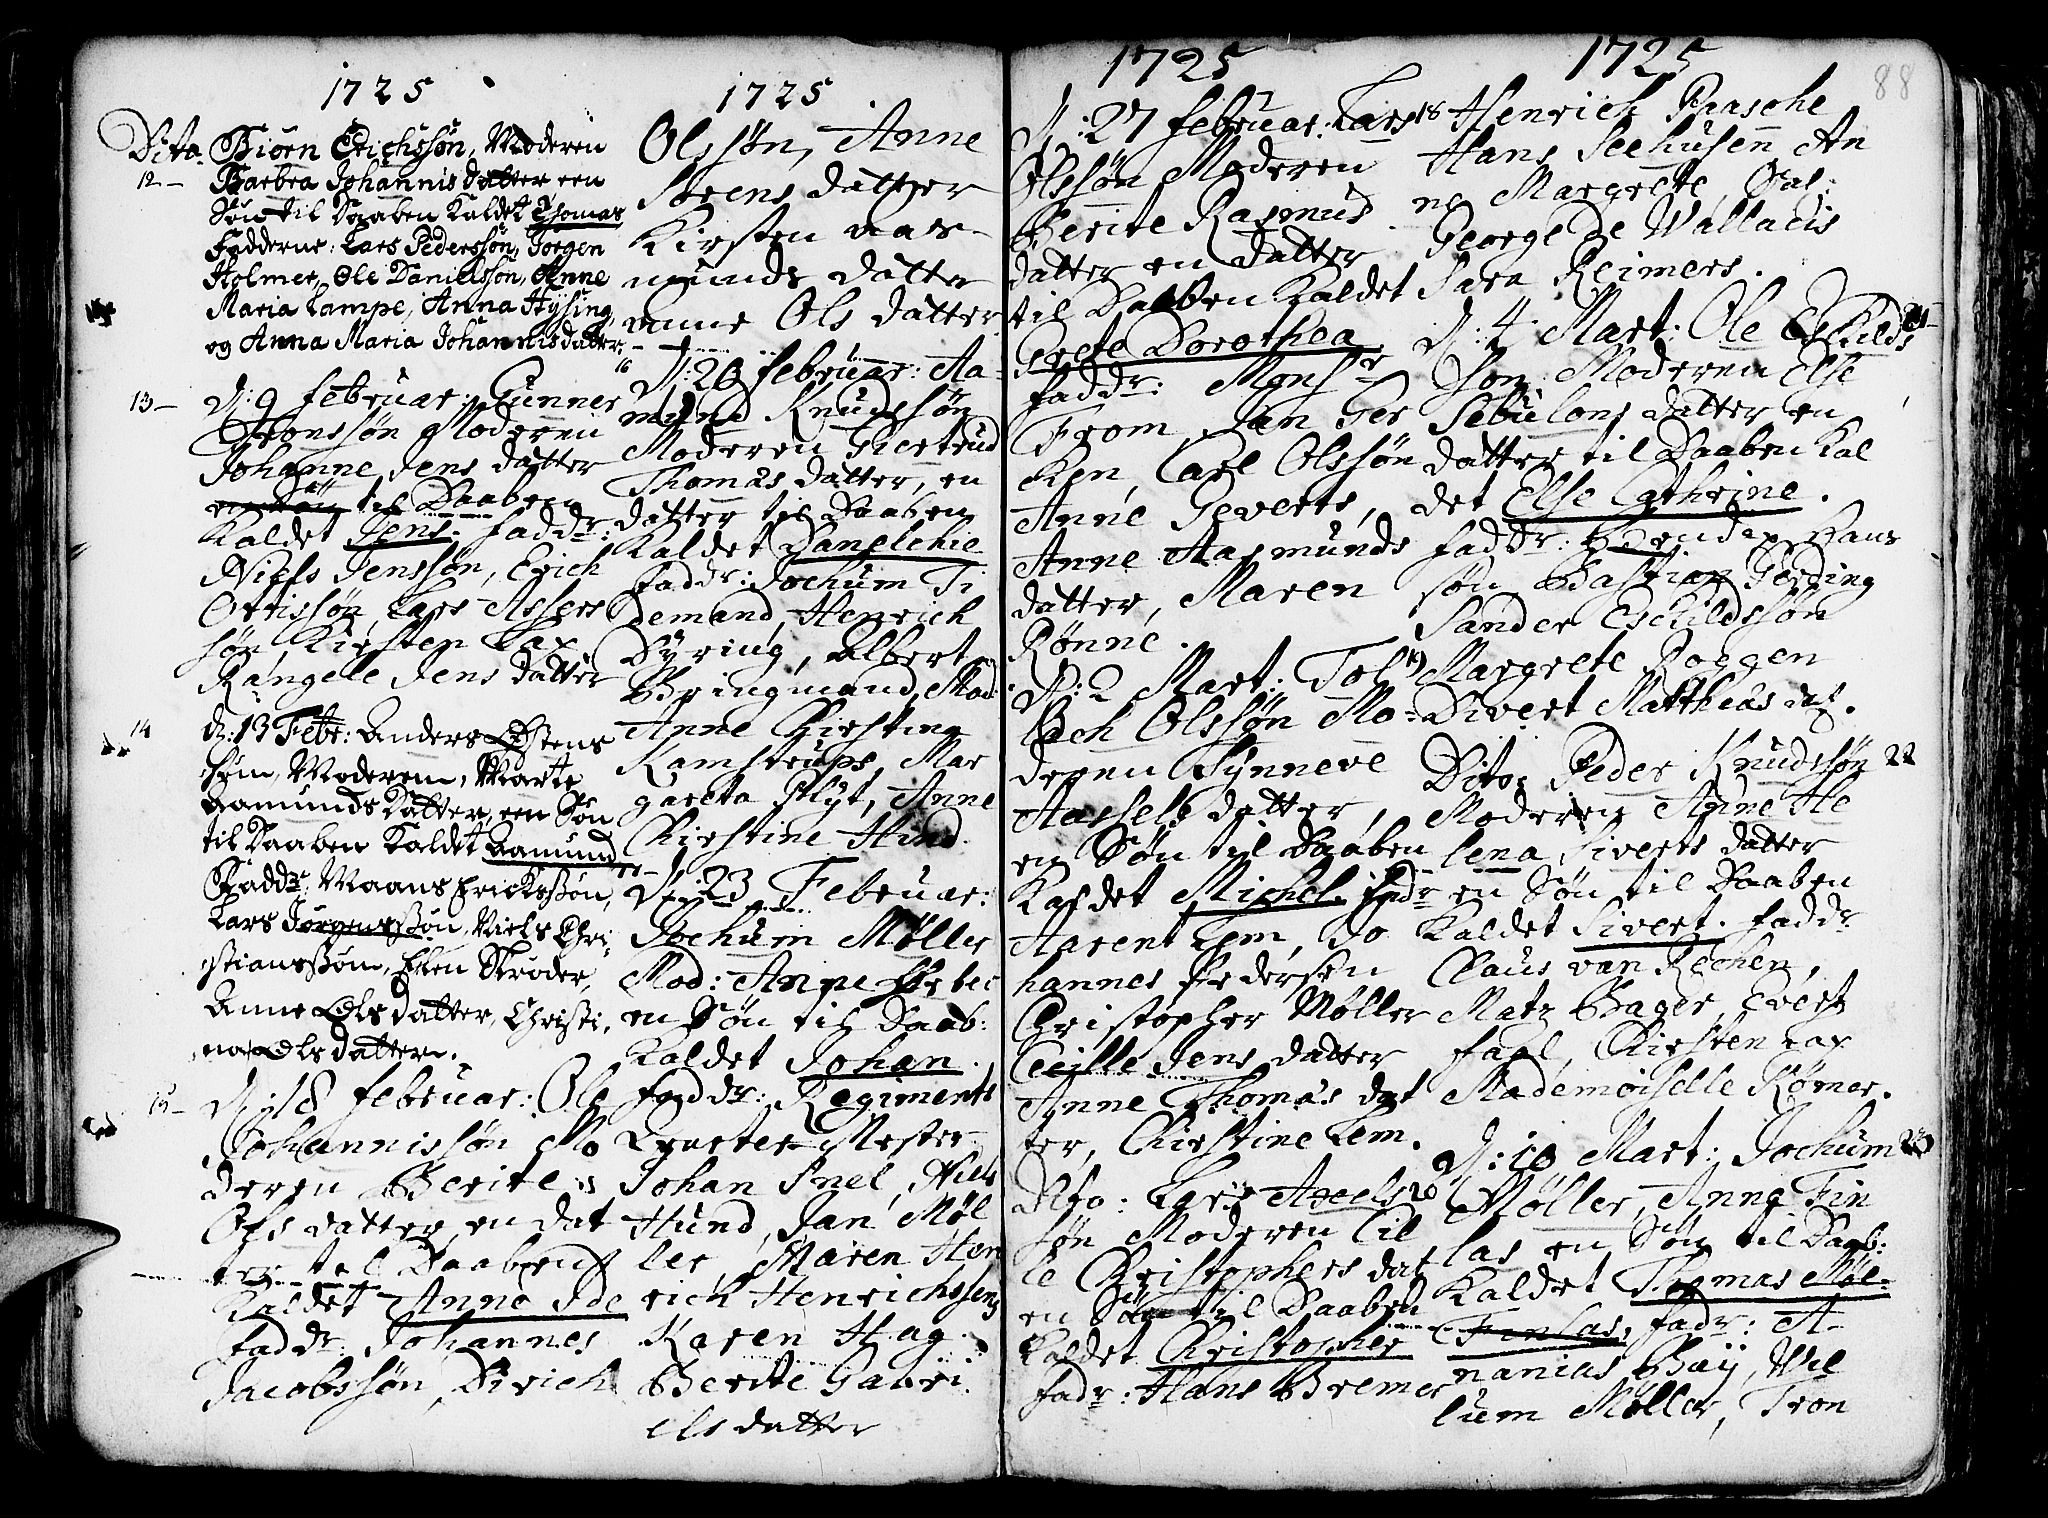 1725
Dito. Biørn Erichssøn, Moderen
12 Barbra Johannis datter een
Søn til Daaben Kaldet Thomas
Fadderne: Lars Pederssøn, Jørgen
Holmer, Ole Danielssøn, Anne
Maria Lampe, Anna Hysing,
og Anna Maria Johannisdatter,
13 D: 9 februar: Gunner
Tronssøn Moderen
Johanne Jens datter
en Søn til Daaben
Kaldet Jens. faddr:
Niels Jenssøn, Erich
Ottissøn, Lars Assers
søn, Kirsten Lax
Rangele Jens datter
14 d: 13 Febr: Anders Østens
søn, Moderen, Marte
Aamunds datter, een Søn
til Daaben Kaldet Aamund
Faddr: Maans Erickssøn,
Lars Jørgenssøn, Niels Chri
stianssøn, Ellen Strøder,
Anne Ols datter, Christi,
na Ols datter.
15 D: 18 februar: Ole
Johannissøn Mo
deren Berite
Ols datter en dat
ter til Daaben
Kaldet Anne Ide
faddr: Johannes
Jacobssøn, Dirich
1725
Olssøn, Anne
Sørens datter
Kirsten aas-
munds datter
anne Ols datter
16 D: 20 februar: Aa-
mund Knudssøn
Moderen Giertrud
Thomas datter, en
datter til Daaben
Kaldet Danelchie
faddr: Jochum Ti
demand, Henrich
Dyring, Albert
Bringmand, Mad:
Anne Chirstine
Kamstrups, Mar
gareta Flyt, Anne
Chirstine Hind.
17 D: 23 Februar:
Jochum Møller
Mod: Anne
en Søn til Daab:
Kaldet Johan.
faddr: Regiments
Qvarter Mester
Johan Snel, Niels
Hund, Jan Møl
ler, Maren Hen
rich Henrichssens
Karen Hag
Berite Gabri
els datter
1725
D: 27 februar: Lars 18
Olssøn Moderen
Berite Rasmus
datter en datter
til Daaben Kaldet
Grete Dorothea
faddr: Monsr
From, Jan Ger
ken, Carl Olssøn
Anne Geverts,
Anne Aasmunds
datter, Maren
Rønne.
D: 2 Mart: Tol 19
lach Olssøn Mo=
deren Synneve
Hassels datter,
en Søn til Daaben
Kaldet Michel. fadr
Harent Lem, Jo
hannes Pedersen
Christopher Møller
Ceille Jens datter
Anne Thomas dat
ter, Chirstine Lem.
Dito: Lars Axels 20
søn Moderen Cil
le Christophers dat
en Søn til Daaben
Kaldet Christopher
fadr: Hans Bremer
1725
88
Henrich Paasche
Hans Seehusen An
ne Margrete,
George de Wallacis
Sara Reimers.
D: 4 Mart: Ole Eskilds 21
søn Moderen Else
Sebulons datter en
datter til Daaben Kal
det Else Cathrine.
faddr: Hans
søn, Bastian Gerding
Sander Eskildssøn
Margrete Roggen
Divert Matthias dat.
Dito: Peder Knudssøn 22
Moderen Anne He
lena Siverts datter
en Søn til Daaben
Kaldet Sivert. faddr
Claus van Rechen,
Matz Bager, Evert
fahl, Chirsten Lax
Mademoiselle Rømer.
D: 10 Mart: Jochum 23
Møller, Anne Fin
las en Søn til Daab:
Kaldet Thomas Møl-
Finlas, fadr: A-
nanias Baÿ, Wil
lum Møller, Tron